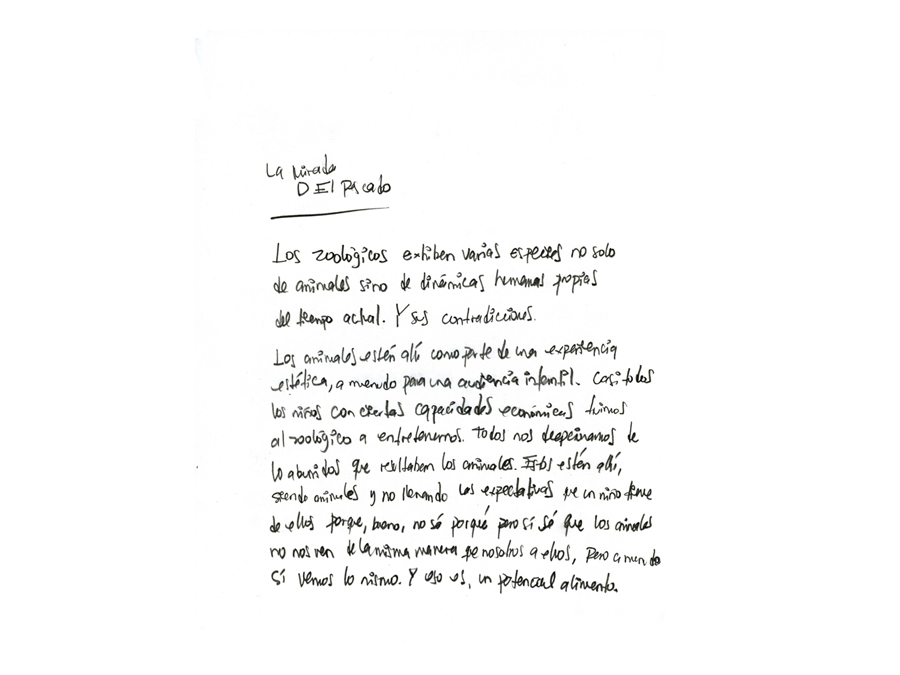 La mirada
DEl PECado
Los zoológicos exhiben varias especies no solo
de animales sino de dinámicas humanas propias
del tiempo actual. Y sus contradicciones.
Los animales están allí como parte de una experiencia
estética, a menudo para una audiencia infantil. Casi todos
los niños con ciertas capacidades económicas fuimos
al zoológico a entretenernos. Todos nos decepcionamos de
lo aburridos que resultaban los animales. Ellos están allí,
siendo animales y no llenando las expectativas que un niño tiene
de ellos porque, bueno, no sé porqué pero sí sé que los animales
no nos ven de la misma manera que nosotros a ellos, pero a menudo
sí vemos lo mismo. Y eso es, un potencial alimento.